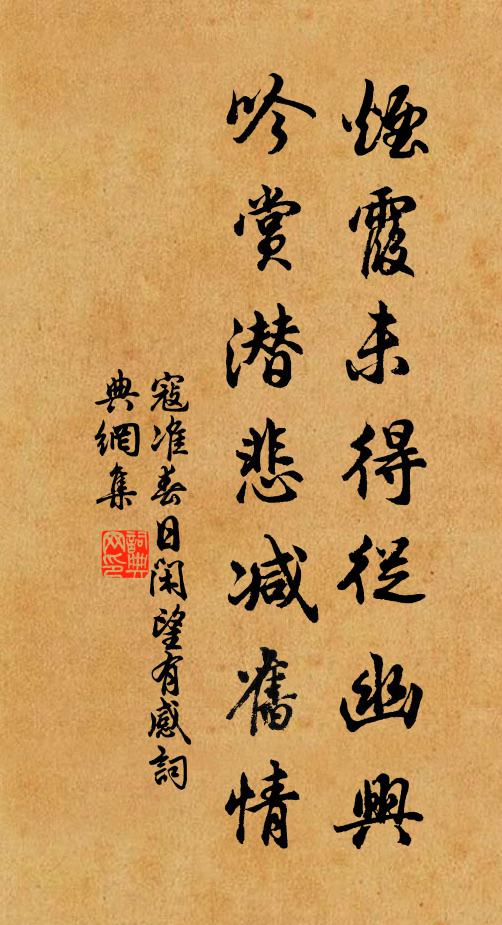 煙霞未得從幽興
吟賞潜悲减舊情
寇准春日閑望有感詞
典網集
詞典
网印